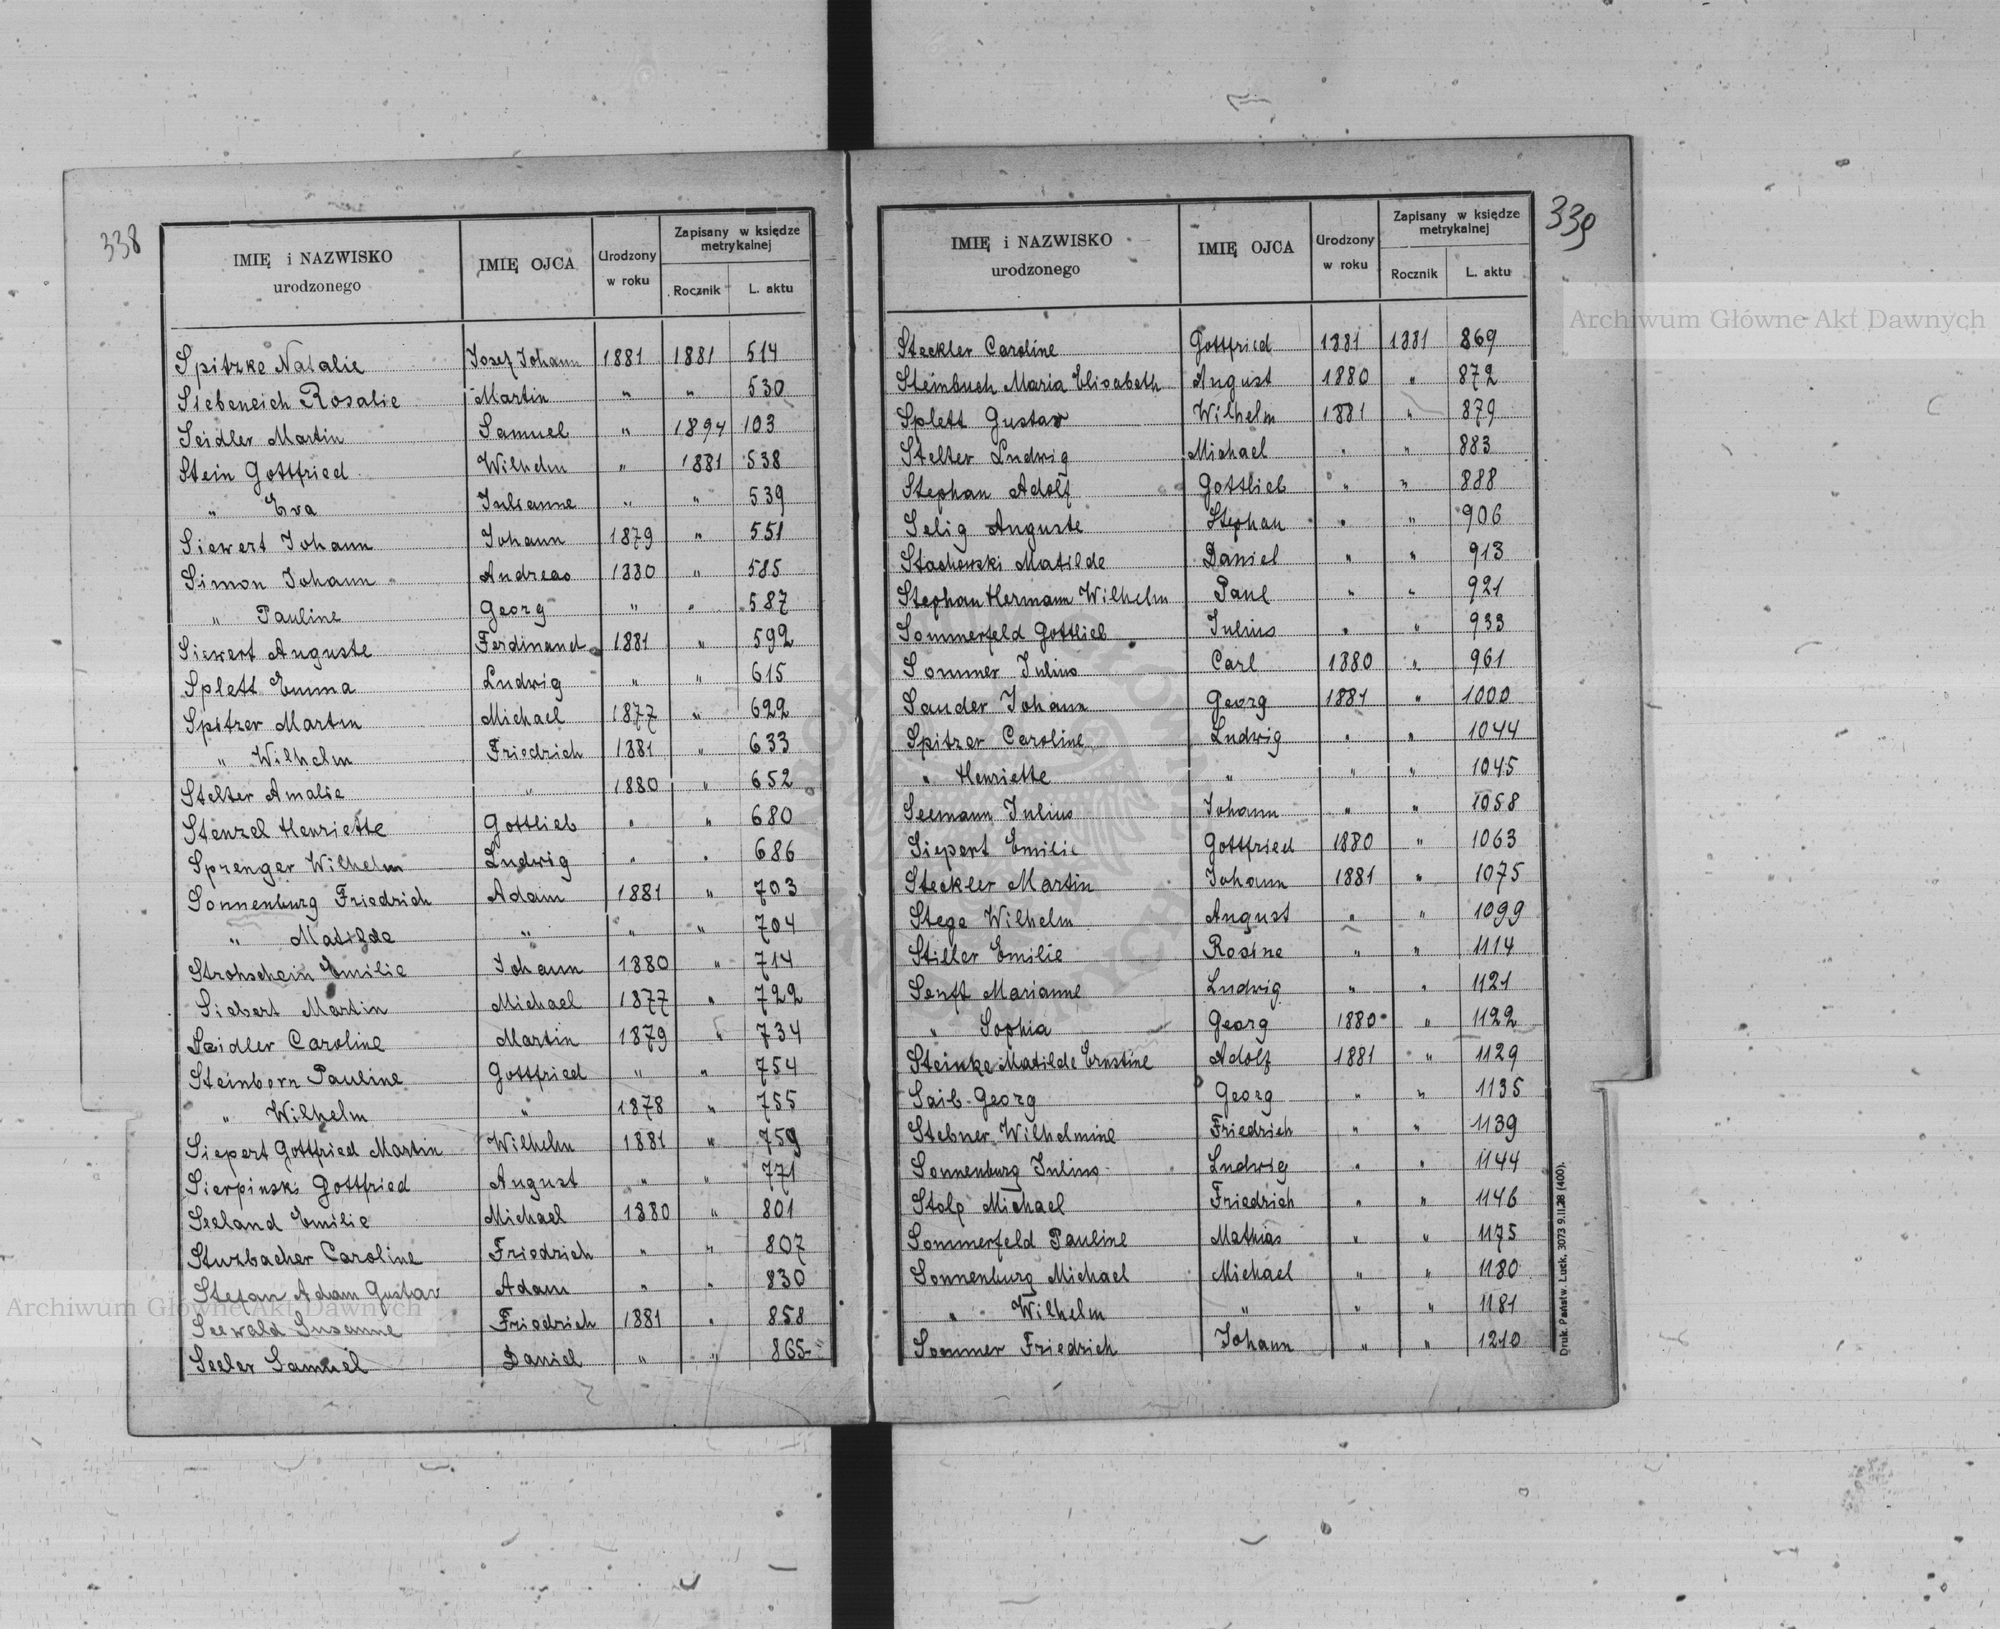 338
IMIĘ i NAZWISKO urodzonego | IMIĘ OJCA | Urodzony w roku | Zapisany w księdze metrykalnej
Rocznik | L. aktu
Spitzke Natalie | Josef Johann | 1881 | 1881 | 514
Siebeneich Rosalie | Martin | " | " | 530
Seidler Martin | Samuel | " | 1894 | 103
Stein Gottfried | Wilhelm | " | 1881 | 538
" Eva | Julianne | " | " | 539
Siewert Johann | Johann | 1879 | " | 551
Simon Johann | Andreas | 1880 | " | 585
" Pauline | Georg | " | " | 587
Siewert Auguste | Ferdinand | 1881 | " | 592
Splett Emma | Ludwig | " | " | 615
Spitzer Martin | Michael | 1877 | " | 622
" Wilhelm | Friedrich | 1881 | " | 633
Stelter Amalie | " | 1880 | " | 652
Stenzel Henriette | Gottlieb | " | " | 680
Sprenger Wilhelm | Ludwig | " | " | 686
Sonnenburg Friedrich | Adam | 1881 | " | 703
" Matilde | " | " | " | 704
Strohschein Emilie | Johann | 1880 | " | 714
Siebert Martin | Michael | 1877 | " | 722
Seidler Caroline | Martin | 1879 | " | 734
Steinborn Pauline | Gottfried | " | " | 754
" Wilhelm | " | 1878 | " | 755
Siepert Gottfried Martin | Wilhelm | 1881 | " | 759
Sierpinski Gottfried | August | " | " | 771
Seeland Emilie | Michael | 1880 | " | 801
Sturzbacher Caroline | Friedrich | " | " | 807
Stefan Adam Gustav | Adam | " | " | 830
Seewald Susanne | Friedrich | 1881 | " | 858
Seeler Samuel | Daniel | " | " | 865
339
IMIĘ i NAZWISKO urodzonego | IMIĘ OJCA | Urodzony w roku | Zapisany w księdze metrykalnej
Rocznik | L. aktu
Steckler Caroline | Gottfried | 1881 | 1881 | 869
Steinbuch Maria Elisabeth | August | 1880 | " | 872
Splett Gustav | Wilhelm | 1881 | " | 879
Stelter Ludwig | Michael | " | " | 883
Stephan Adolf | Gottlieb | " | " | 888
Selig Auguste | Stephan | " | " | 906
Stachowski Matilde | Daniel | " | " | 913
Stephan Hermann Wilhelm | Paul | " | " | 921
Sommerfeld Gottlieb | Julius | " | " | 933
Sommer Julius | Carl | 1880 | " | 961
Sander Johann | Georg | 1881 | " | 1000
Spitzer Caroline | Ludwig | " | " | 1044
" Henriette | " | " | " | 1045
Seemann Julius | Johann | " | " | 1058
Siepert Emilie | Gottfried | 1880 | " | 1063
Steckler Martin | Johann | 1881 | " | 1075
Stege Wilhelm | August | " | " | 1099
Stiller Emilie | Rosine | " | " | 1114
Senft Marianne | Ludwig | " | " | 1121
" Sophia | Georg | 1880 | " | 1122
Steinke Matilde Ernstine | Adolf | 1881 | " | 1129
Saib Georg | Georg | " | " | 1135
Stebner Wilhelmine | Friedrich | " | " | 1139
Sonnenburg Julius | Ludwig | " | " | 1144
Stolp Michael | Friedrich | " | " | 1146
Sommerfeld Pauline | Mathias | " | " | 1175
Sonnenburg Michael | Michael | " | " | 1180
" Wilhelm | " | " | " | 1181
Sommer Friedrich | Johann | " | " | 1210
Druk. Państw. Łuck. 3073 9.II.28 (400).
Archiwum Główne Akt Dawnych
Archiwum Główne Akt Dawnych